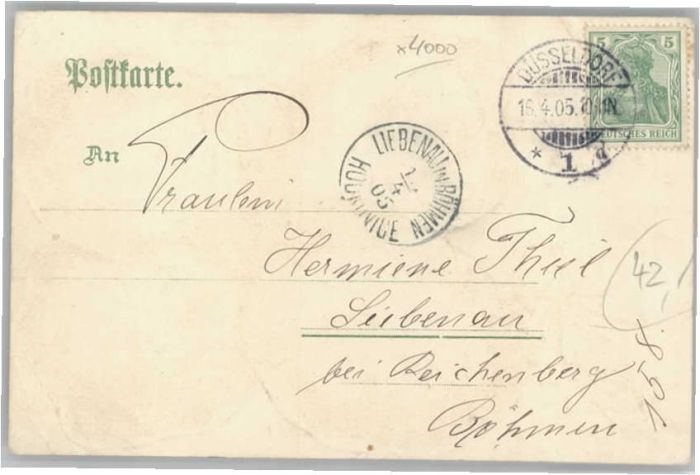 x4000
5 5
DEUTSCHES REICH
Postkarte.
DÜSSELDORF
16.4.05.10-11N.
* 1 d
LIEBENAU IN BÖHMEN
HODKOVICE
4
05
An
Fräulein
Hermiene Thiel
42,
Liebenau
bei Reichenberg
158.
Böhmen